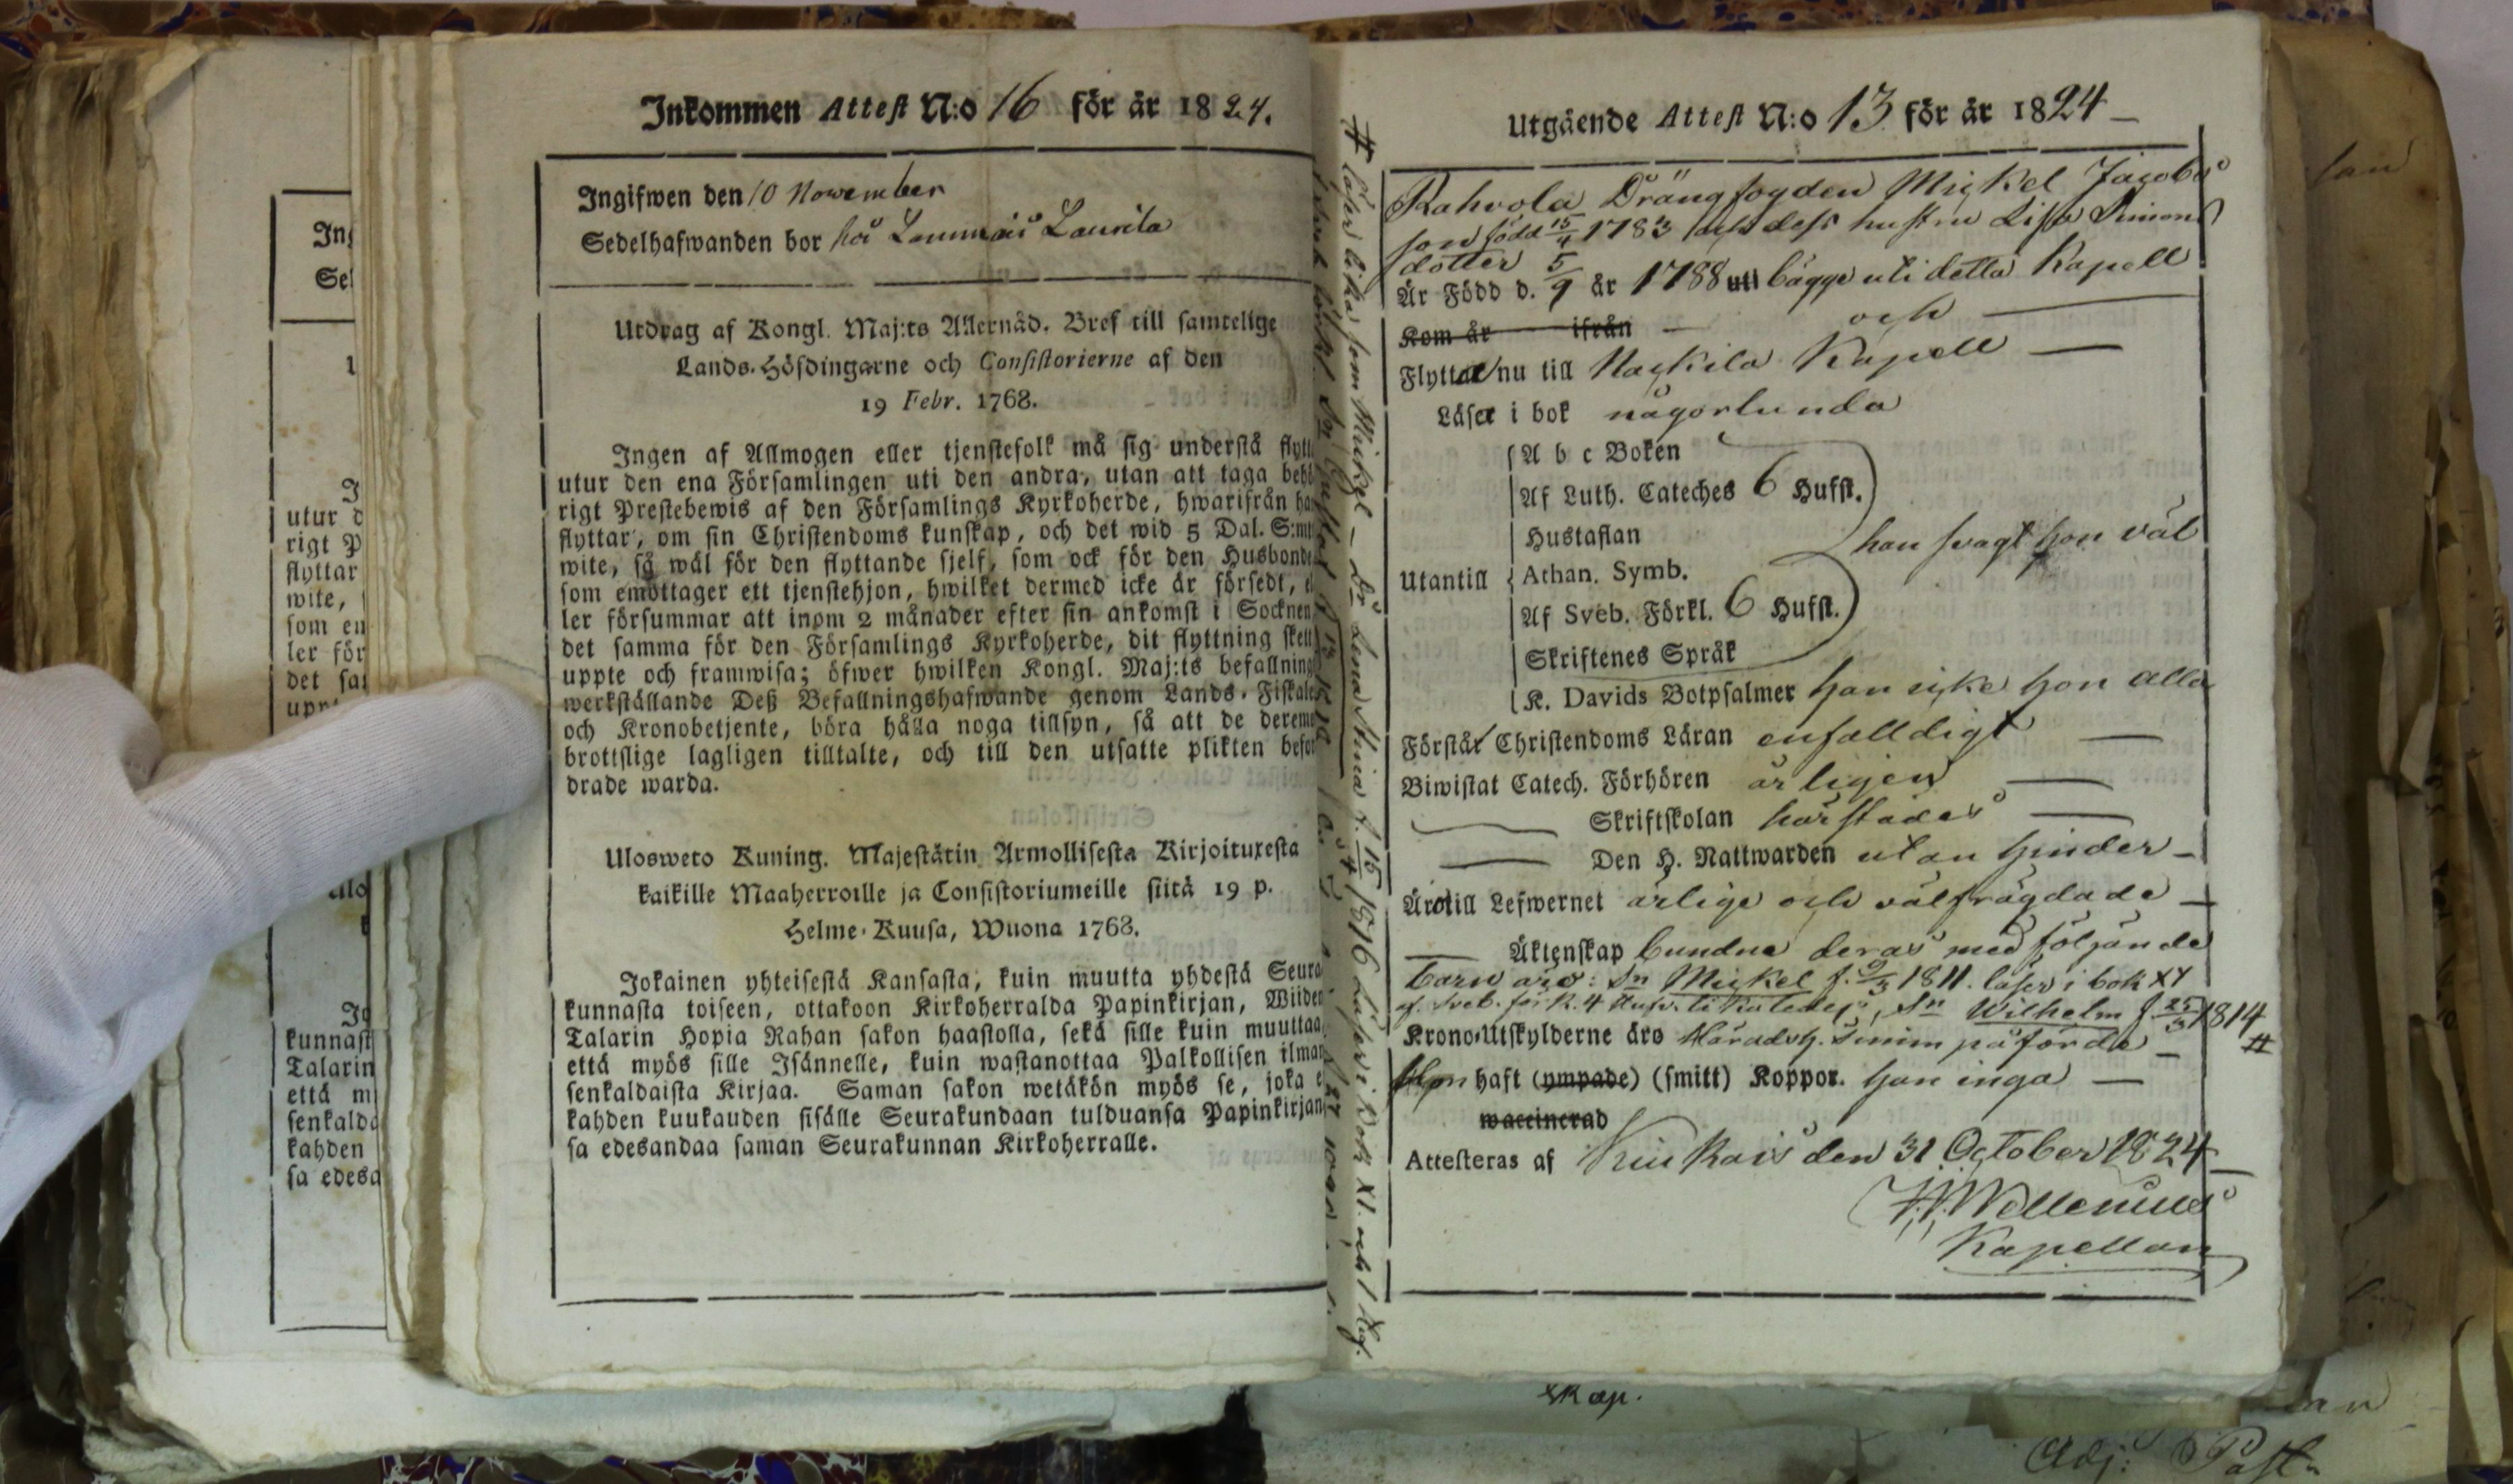 Inkommen Attest N:o 16 för år 1824.
Ingifwen den 10 November
Sedelhafwanden bor på Lammais Laurila
Utdrag af Kongl. Maj:ts Allernåd. Bref till samtelige
Lands-Höfdingarne och Consistorierne af den
19 Febr. 1768.
Ingen af Allmogen eller tjenstefolk må sig understå flytt
utur den ena Församlingen uti den andra, utan att taga behö
rigt Prestebewis af den Församlings Kyrkoherde, hwarifrån ha
flyttar, om sin Christendoms kunskap, och det wid 5 Dal. S:mt
wite, så wäl för den flyttande sjelf, som ock för den Husbonde
som emottager ett tjenstehjon, hwilket dermed icke är försedt, el
ler försummar att inom 2 månader efter sin ankomst i Socknen
det samma för den Församlings Kyrkoherde, dit flyttning skett
uppte och framwisa; öfwer hwilken Kongl. Maj:ts befallning
werkställande Deß Befallningshafwande genom Lands-Fiskale
och Kronobetjente, böra hålla noga tillsyn, så att de deremo
brottslige lagligen tilltalte, och till den utsatte plikten befor
drade warda.
Ulosweto Kuning. Majestätin Armollisesta Kirjoituxesta
kaikille Maaherroille ja Consistoriumeille siitä 19 p.
Helme-Kuusa, Wuona 1768.
Jokainen yhteisestä Kansasta, kuin muutta yhdestä Seura
kunnasta toiseen, ottakoon Kirkoherralda Papinkirjan, Wiiden
Talarin Hopia Rahan sakon haastolla, sekä sille kuin muuttaa,
että myös sille Isännelle, kuin wastanottaa Palkollisen ilman
senkaldaista Kirjaa. Saman sakon wetäkön myös se, joka e
kahden kuukauden sisälle Seurakundaan tulduansa Papinkirjan
sa edesandaa saman Seurakunnan Kirkoherralle.
# läser lika som Mickel – Dr Lena Stina f. 15/4 1816 Läser i bok XI. och 1 Huf.
Utgående Attest N:o 13 för år 1824
Kahvola Drängfogden Mickel Jacobs
son född 15/4 1783 och dess hustru Lisa Simons
dotter
Är Född d. 5/9 år 1788 uti bägge uti detta Kapell
Kom år ifrån och
Flytta nu till Nackila Kapell
Läser i bok någorlunda
A b c Boken
Af Luth. Cateches 6 Hufst.
Hustaflan
han svagt hon väl
Utantill Athan. Symb.
Af Sveb. Förkl. 6 Hufst.
Skriftenes Språk
K. Davids Botpsalmer han icke hon alla
Förstår Christendoms Läran enfalldigt
Biwistat Catech. Förhören årligen
Skriftskolan härstädes
Den H. Nattwarden utan hinder
Äro till Lefwernet ärlige och välfrägdade
Äktenskap bundne deras med följande
barn äro: Sn Mickel f. 9/3 1811. läser i bok XI
af Sveb. förk. 4 Sn Wilhelm f 25/3 1814 #
Krono-Utskylderne äro Häradsh. Simm påförde
Hon haft (ympade) (smitt) Koppor. han inga
waccinerad
Attesteras af Kiukais den 31 October 1824
Wellenius
Kapellan
Kap.
Adj: Past.
In
Se
utur d
rigt P
flyttar
wite,
som en
ler för
det sa
kunnast
Talarin
että m
senkalda
kahden
sa edesa